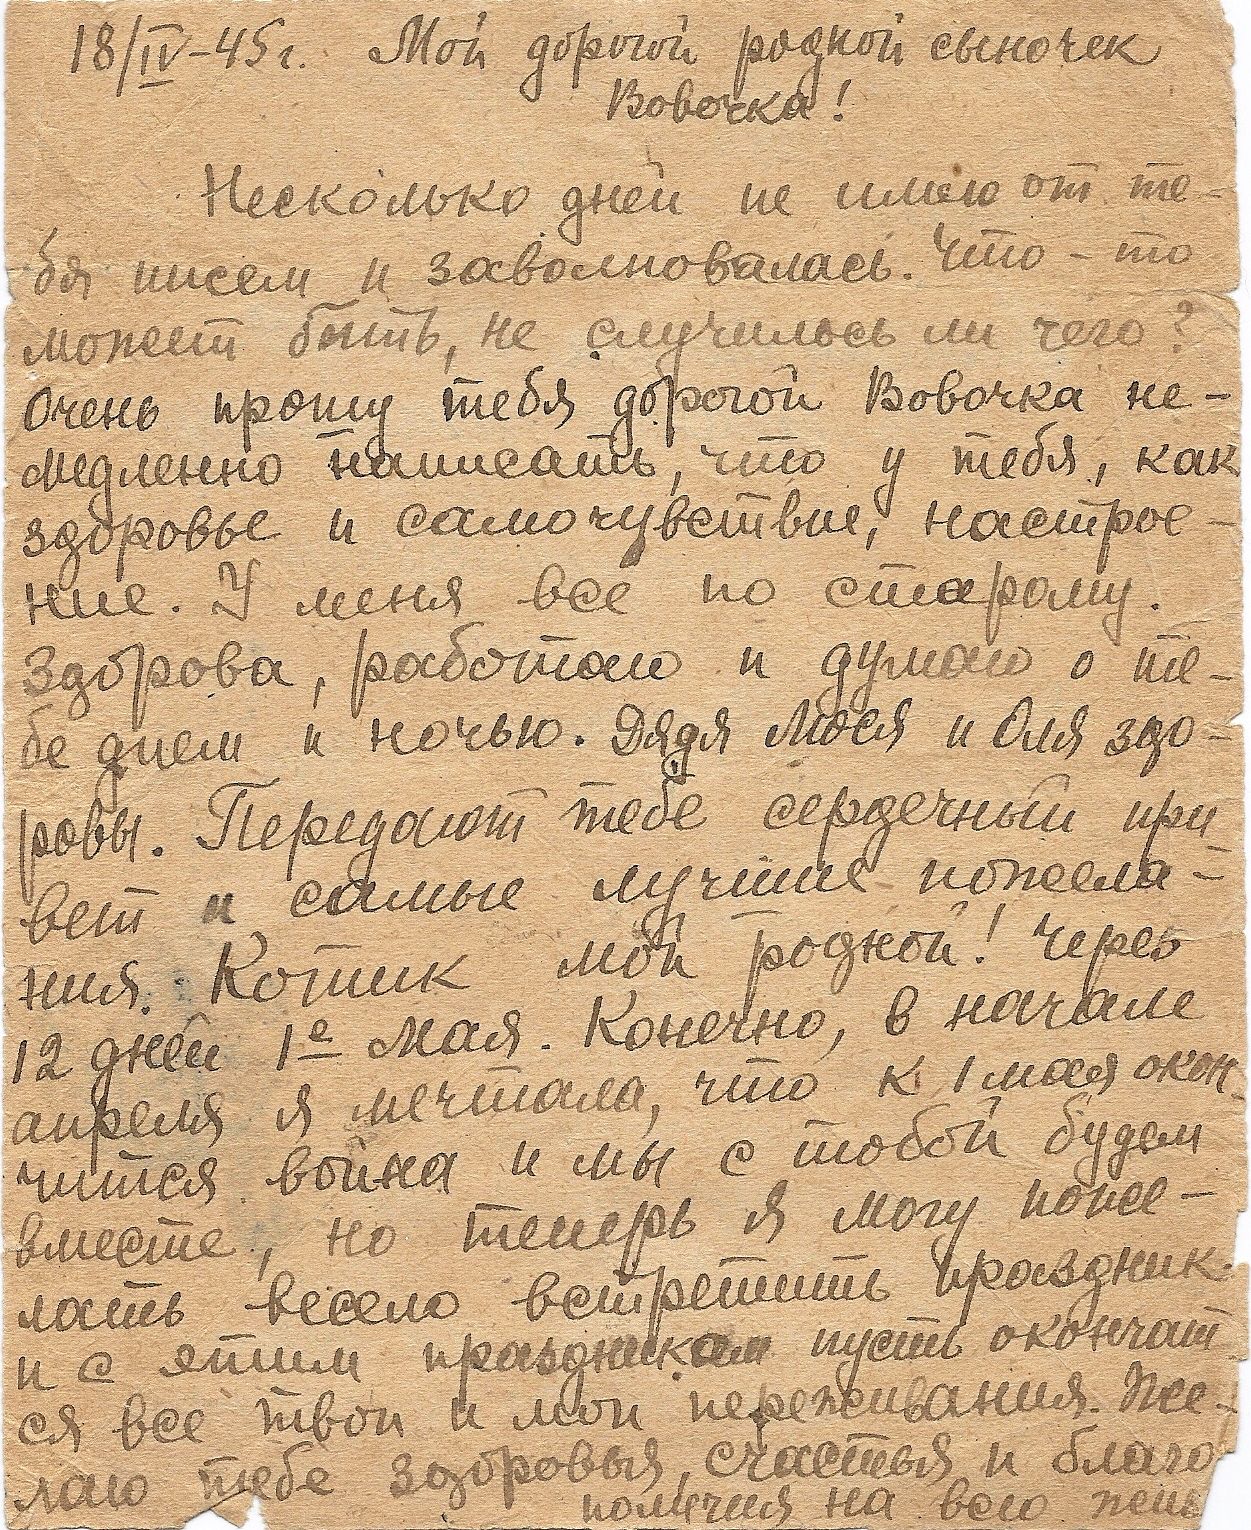 18/IV-45г. Мой дорогой родной сыночек
Вовочка!
Несколько дней не имею от те-
бя писем и заволновалась. Что-то
может быть, не случилось ли чего?
Очень прошу тебя дорогой Вовочка не-
медленно написать, что у тебя, как
здоровье и самочувствие, настрое-
ние. У меня все по старому.
Здорова, работаю и думаю о те-
бе днем и ночью. Дядя Мося и Оля здо-
ровы. Передают тебе сердечный при
вет и самые лучшие пожела-
ния. Котик мой родной! Через
12 дней 1е Мая. Конечно, в начале
апреля я мечтала, что к 1 мая окон-
чится война и мы с тобой будем
вместе, но теперь я могу поже-
лать весело встретить праздник
и с этим праздником пусть окончат
ся все твои и мои переживания. Же-
лаю тебе здоровья, счастья и благо
получия на всю жизнь